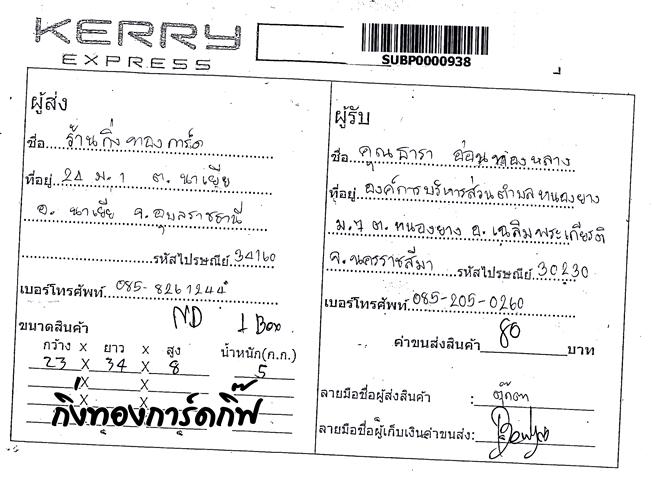 KERRY
EXPRESS
SUBP0000938
ผู้ส่ง
ชื่อ ร้านกิ่งทองการ์ด
ที่อยู่ 24 ม.1 ต. นาเยีย
อ. นาเยีย จ.อุบลราชธานี
รหัสไปรษณีย์ 34160
เบอร์โทรศัพท์ 085-8261244
ND 1 Box
ขนาดสินค้า
กว้าง x ยาว x สูง น้ำหนัก(ก.ก.)
23 X 34 X 8 5
X X
X X
กิ่งทองการ์ดกิ๊ฟ
ผู้รับ
ชื่อ คุณธารา อ่อนท่องหลาง
ที่อยู่ องค์การบริหารส่วนตำบลหนองยาง
ม.7 ต.หนองยาง อ.เฉลิมพระเกียรติ
จ.นครราชสีมา รหัสไปรษณีย์ 30230
เบอร์โทรศัพท์ 085-205-0260
ค่าขนส่งสินค้า 80 บาท
ลายมือชื่อผู้ส่งสินค้า : ตุ๊กตา
ลายมือชื่อผู้เก็บเงินค่าขนส่ง: